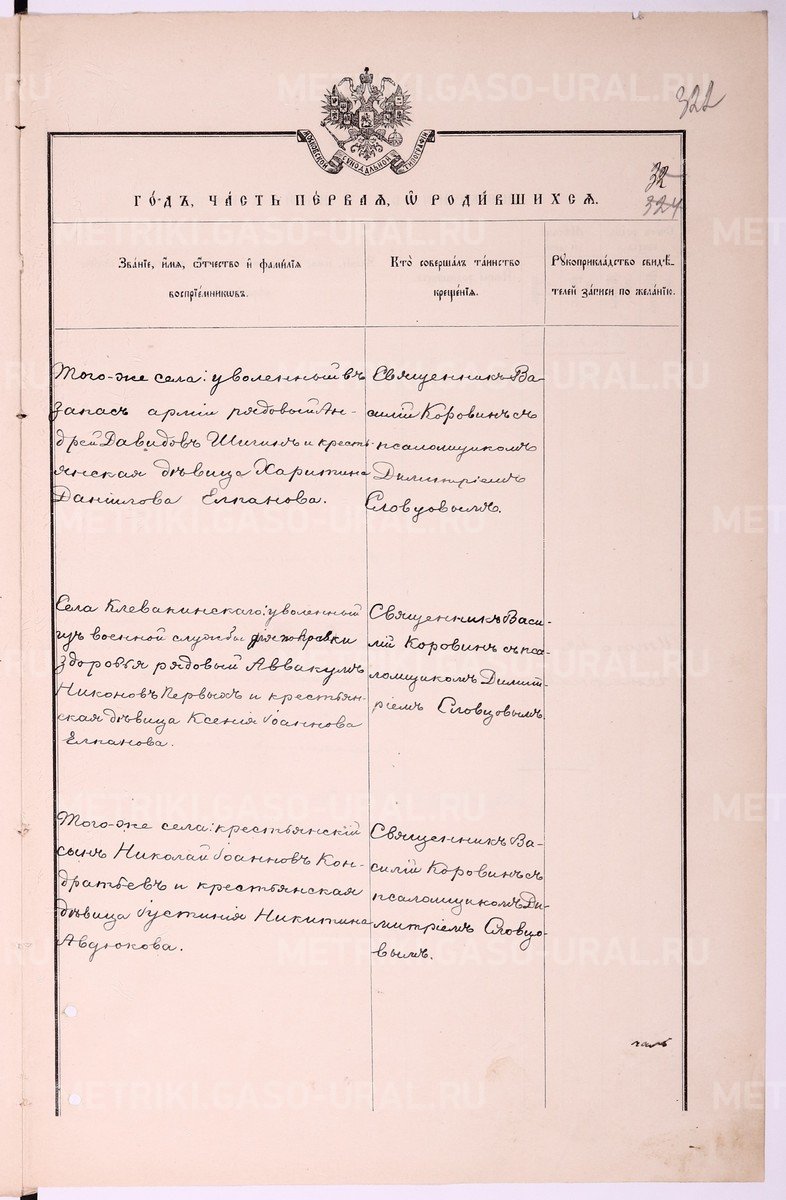 322
МОСКОВСКОЙ СѴНОДАЛЬНОЙ ТИПОГРАФІИ
32
324
ГО́ДЪ, ЧА́СТЬ ПЕ́РВАЯ, Ѡ҆ РОДИ́ВШИХСЯ.
Зва́нїе, и҆́мя, ѻ҆́тчество и҆ фами́лїя
воспрїе́мникѡвъ.
Кто̀ соверша́лъ та́инство
креще́нїя.
Рꙋкоприкла́дство свидѣ́-
телей за́писи по жела́нїю.
Того-же села: уволенный въ
запасъ арміи рядовый Ан-
дрей Давидовъ Шигинъ и кресть-
янская дѣвица Харитина
Даніилова Елпанова.
Священникъ Ва-
силій Коровинъ съ
псаломщикомъ
Димитріемъ
Словцовымъ.
Села Клевакинскаго: уволенный
изъ военной службы для поправки
здоровья рядовый Аввакумъ
Никоновъ Первыхъ и крестьян-
ская дѣвица Ксенія Іоаннова
Елпанова.
Священникъ Васи-
лій Коровинъ съ пса-
ломщикомъ Димит-
ріемъ Словцовымъ
Того-же села: крестьянскій
сынъ Николай Іоанновъ Кон-
дратьевъ и крестьянская
дѣвица Іустинія Никитина
Авдюкова.
Священникъ Ва-
силій Коровинъ съ
псаломщикомъ Ди-
митріемъ Словцо-
вымъ.
METRIKI.GASO-URAL.RU